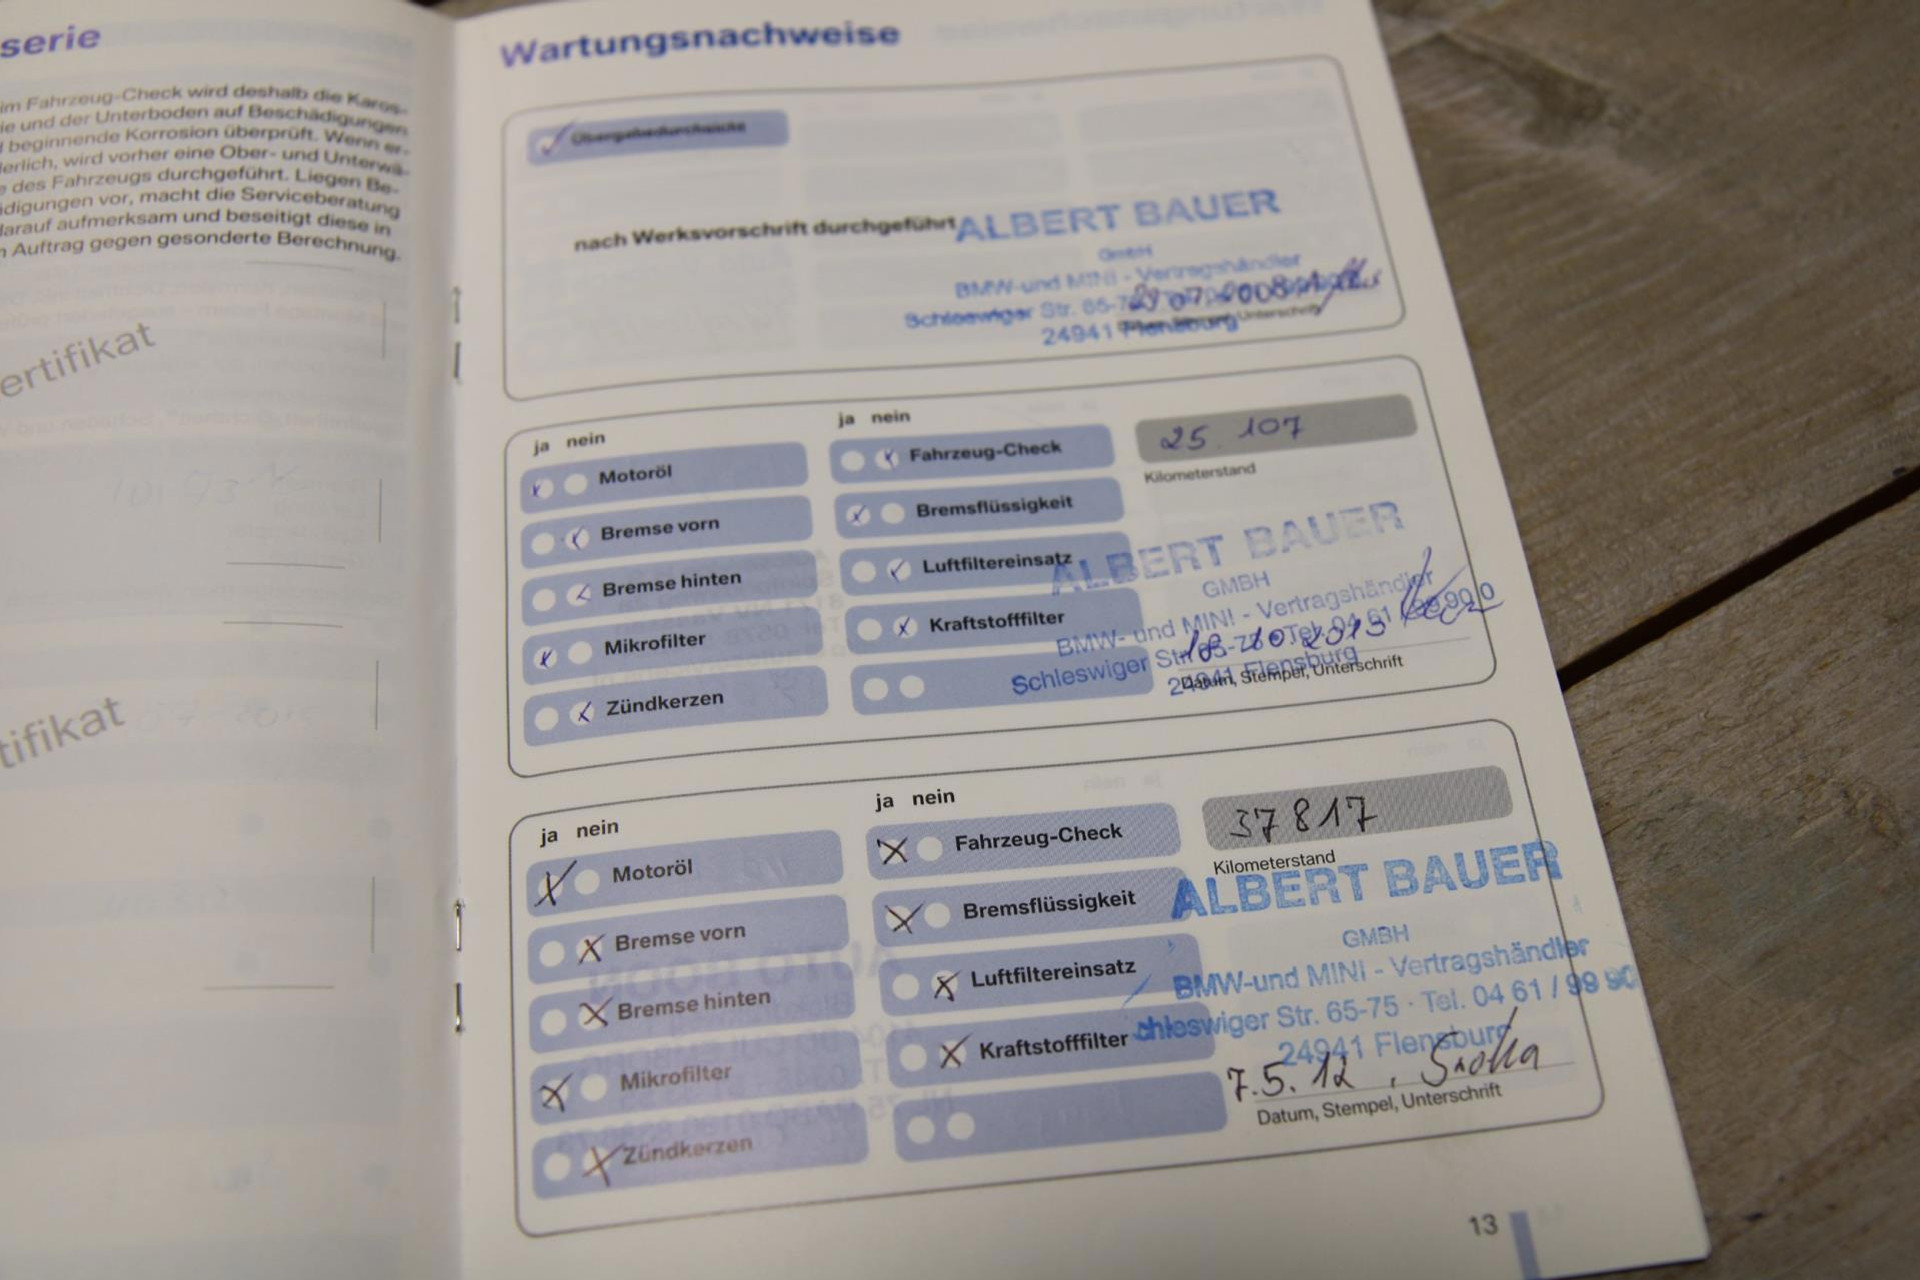 serie
im Fahrzeug-Check wird deshalb die Karos-
ie und der Unterboden auf Beschädigungen
d beginnende Korrosion überprüft. Wenn er-
derlich, wird vorher eine Ober- und Unterwä-
e des Fahrzeugs durchgeführt. Liegen Be-
ädigungen vor, macht die Serviceberatung
darauf aufmerksam und beseitigt diese in
n Auftrag gegen gesonderte Berechnung.
ertifikat
tifikat
Wartungsnachweise
Übergabedurchsicht
nach Werksvorschrift durchgeführt
ALBERT BAUER
GmbH
BMW-und MINI - Vertragshändler
Schleswiger Str. 65-75
24941 Flensburg
Unterschrift
ja nein
Motoröl
Bremse vorn
Bremse hinten
Mikrofilter
Zündkerzen
ja nein
Fahrzeug-Check
Bremsflüssigkeit
Luftfiltereinsatz
Kraftstofffilter
25.107
Kilometerstand
ALBERT BAUER
GMBH
BMW- und MINI - Vertragshändler
Schleswiger Str. 65-75 Tel. 04 61
24941 Flensburg
Datum, Stempel, Unterschrift
ja nein
Motoröl
Bremse vorn
Bremse hinten
Mikrofilter
Zündkerzen
ja nein
Fahrzeug-Check
Bremsflüssigkeit
Luftfiltereinsatz
Kraftstofffilter
37817
Kilometerstand
ALBERT BAUER
GMBH
BMW-und MINI - Vertragshändler
chleswiger Str. 65-75 · Tel. 04 61 / 99 90
24941 Flensburg
7.5.12
Datum, Stempel, Unterschrift
13